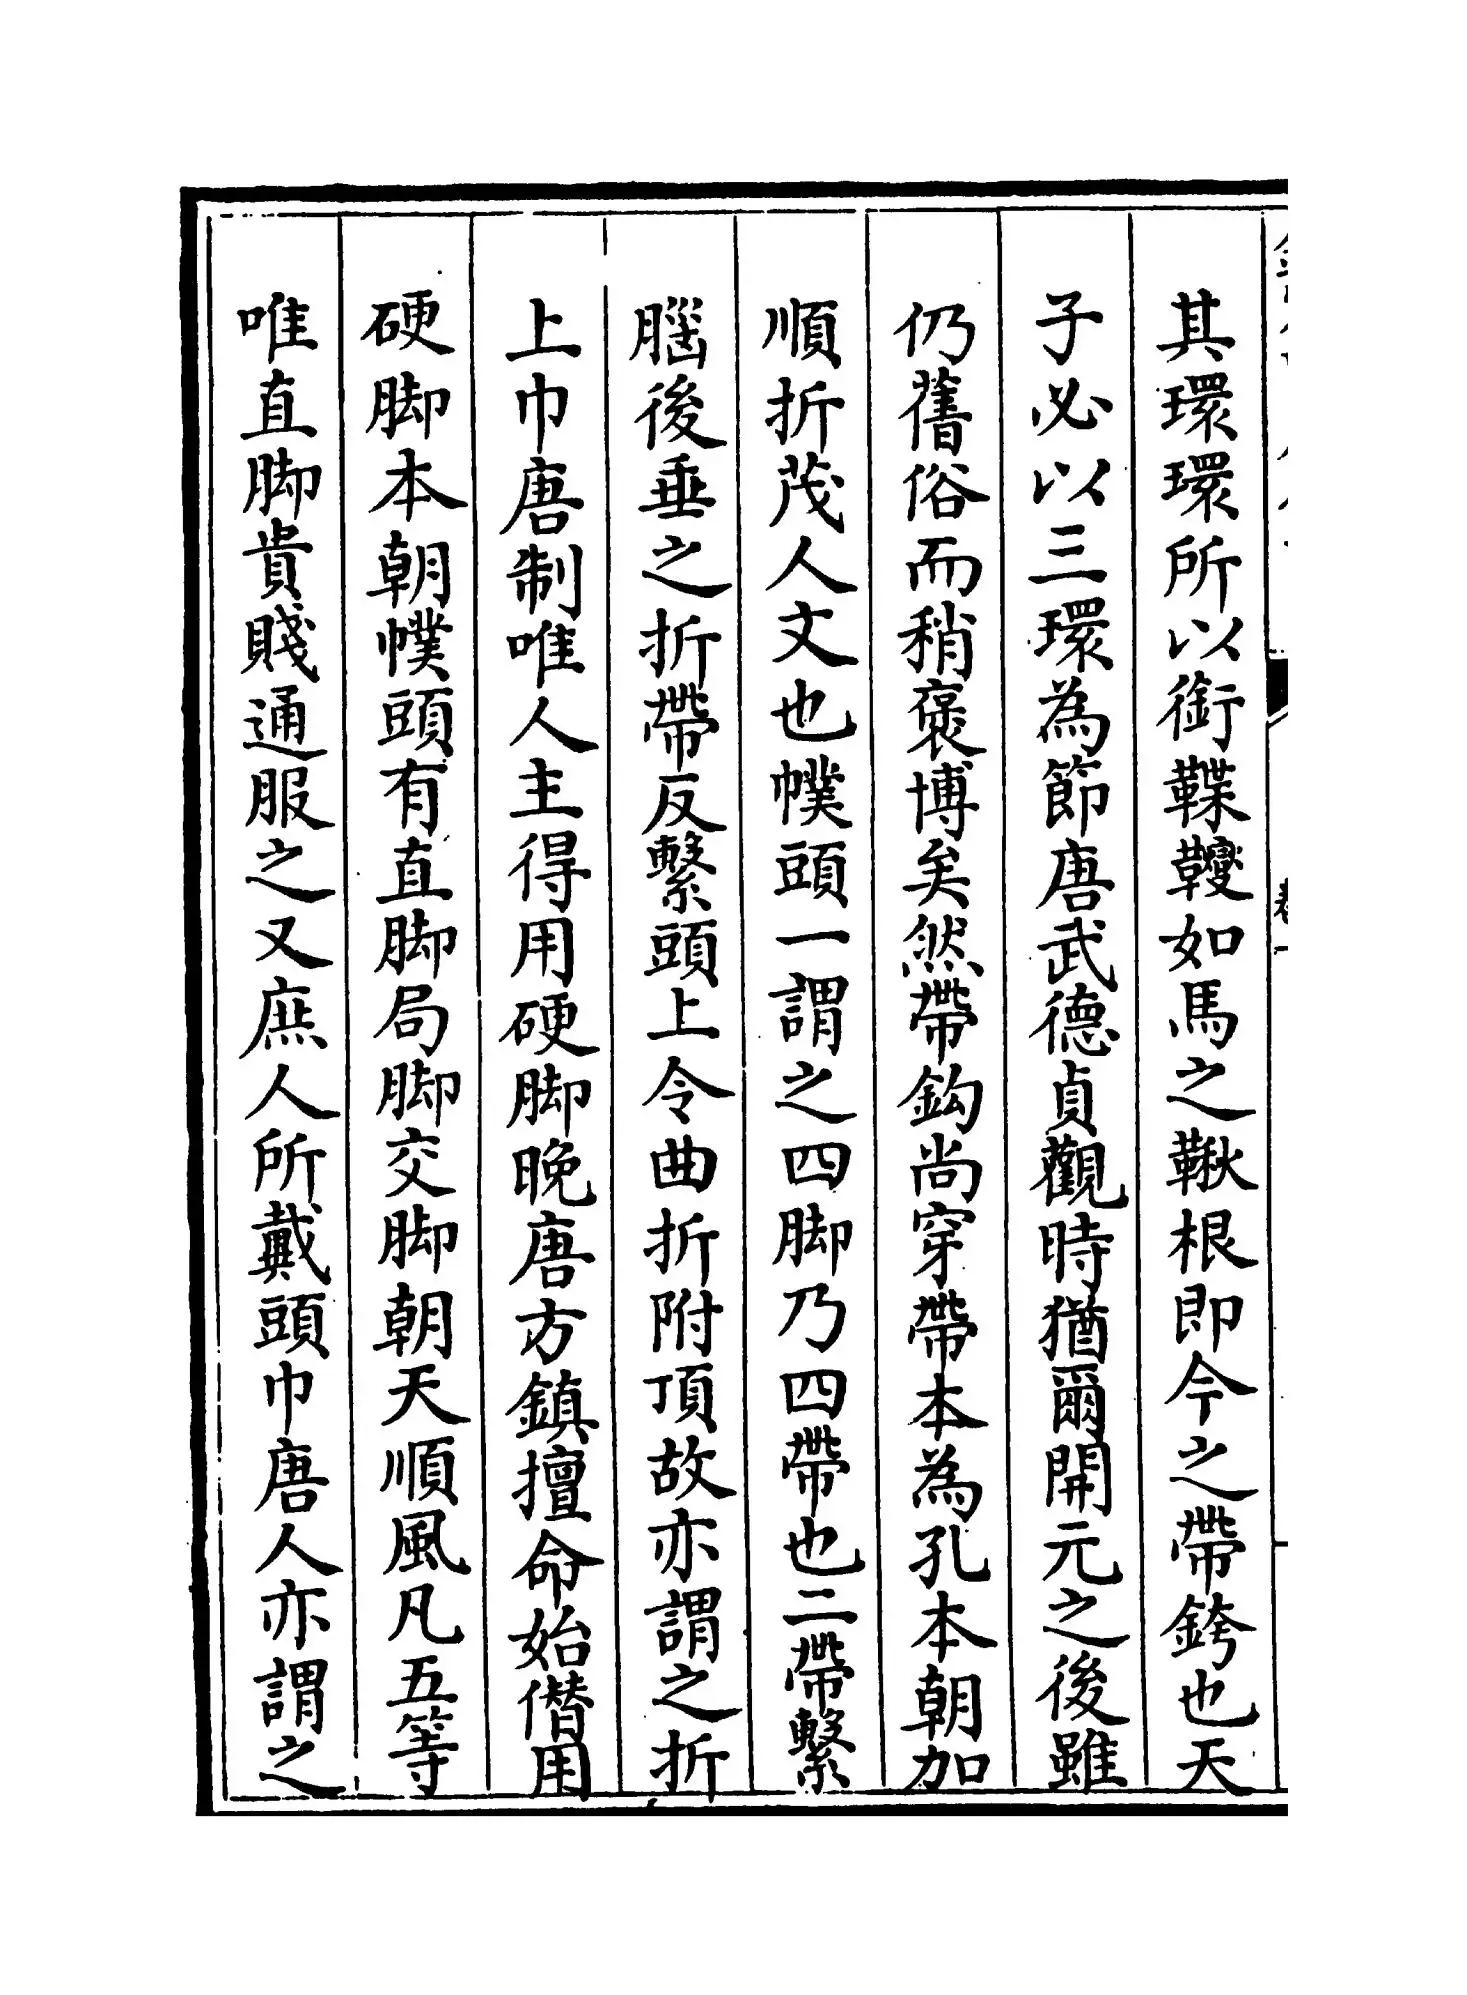 其環環所以銜鞢䪎如馬之鞦根即今之帶銙也天
子必以三環為節唐武德貞觀時猶爾開元之後雖
仍舊俗而稍褒博矣然帶鈎尚穿帶本為孔本朝加
順折茂人文也幞頭一謂之四脚乃四帶也二帶繫
腦後垂之折帶反繫頭上令曲折附頂故亦謂之折
上巾唐制唯人主得用硬脚晚唐方鎮擅命始僭用
硬脚本朝幞頭有直脚局脚交脚朝天順風凡五等
唯直脚貴賤通服之又庶人所戴頭巾唐人亦謂之